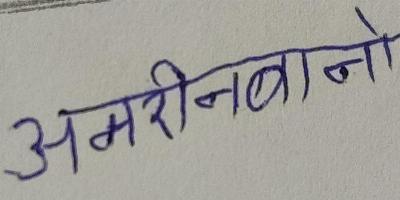 अमरीनबानो